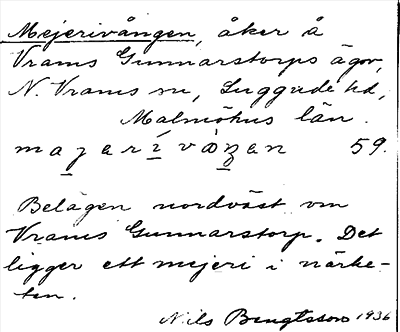 Mejerivången, åker å
Vrams Gunnarstorps ägor,
N. Vrams sn, Luggude hd,
Malmöhus län.
majarívàŋan 59.
Belägen nordväst om
Vrams Gunnarstorp. Det
ligger ett mejeri i närhe-
ten.
Nils Bengtsson 1936